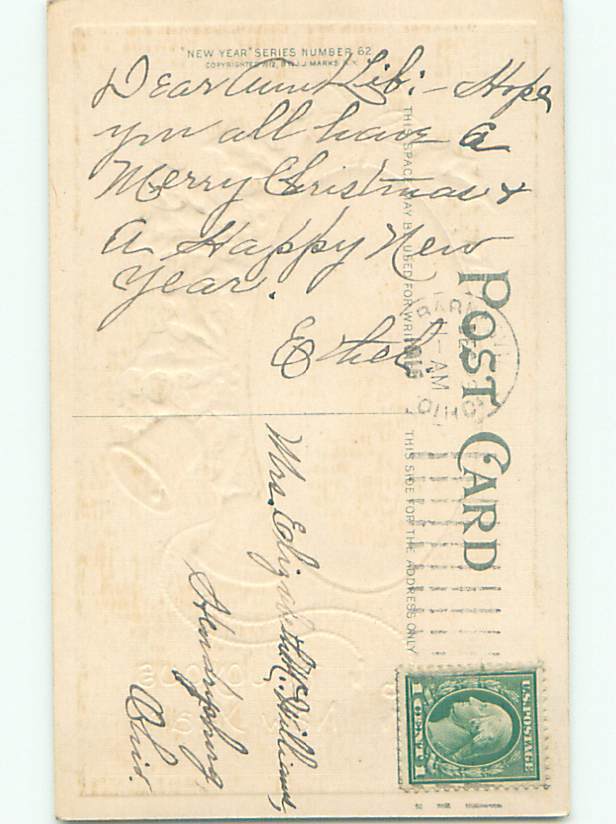 "NEW YEAR" SERIES NUMBER 62
COPYRIGHTED 1912, BY J.J. MARKS N.Y.
Dear Aunt Lib:- Hope
you all have a
Merry Christmas &
A Happy New
Year.
Ethel
THIS SPACE MAY BE USED FOR WRITING
POST CARD
THIS SIDE FOR THE ADDRESS ONLY
AM
1915
OHIO
Mrs. Elizabeth Mc.Williams,
Hendrysburg,
Ohio.
U.S. POSTAGE
1 CENT 1